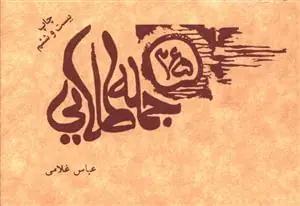 چاپ
بیست و ششم
۲۵
جمله طلایی
عباس غلامی